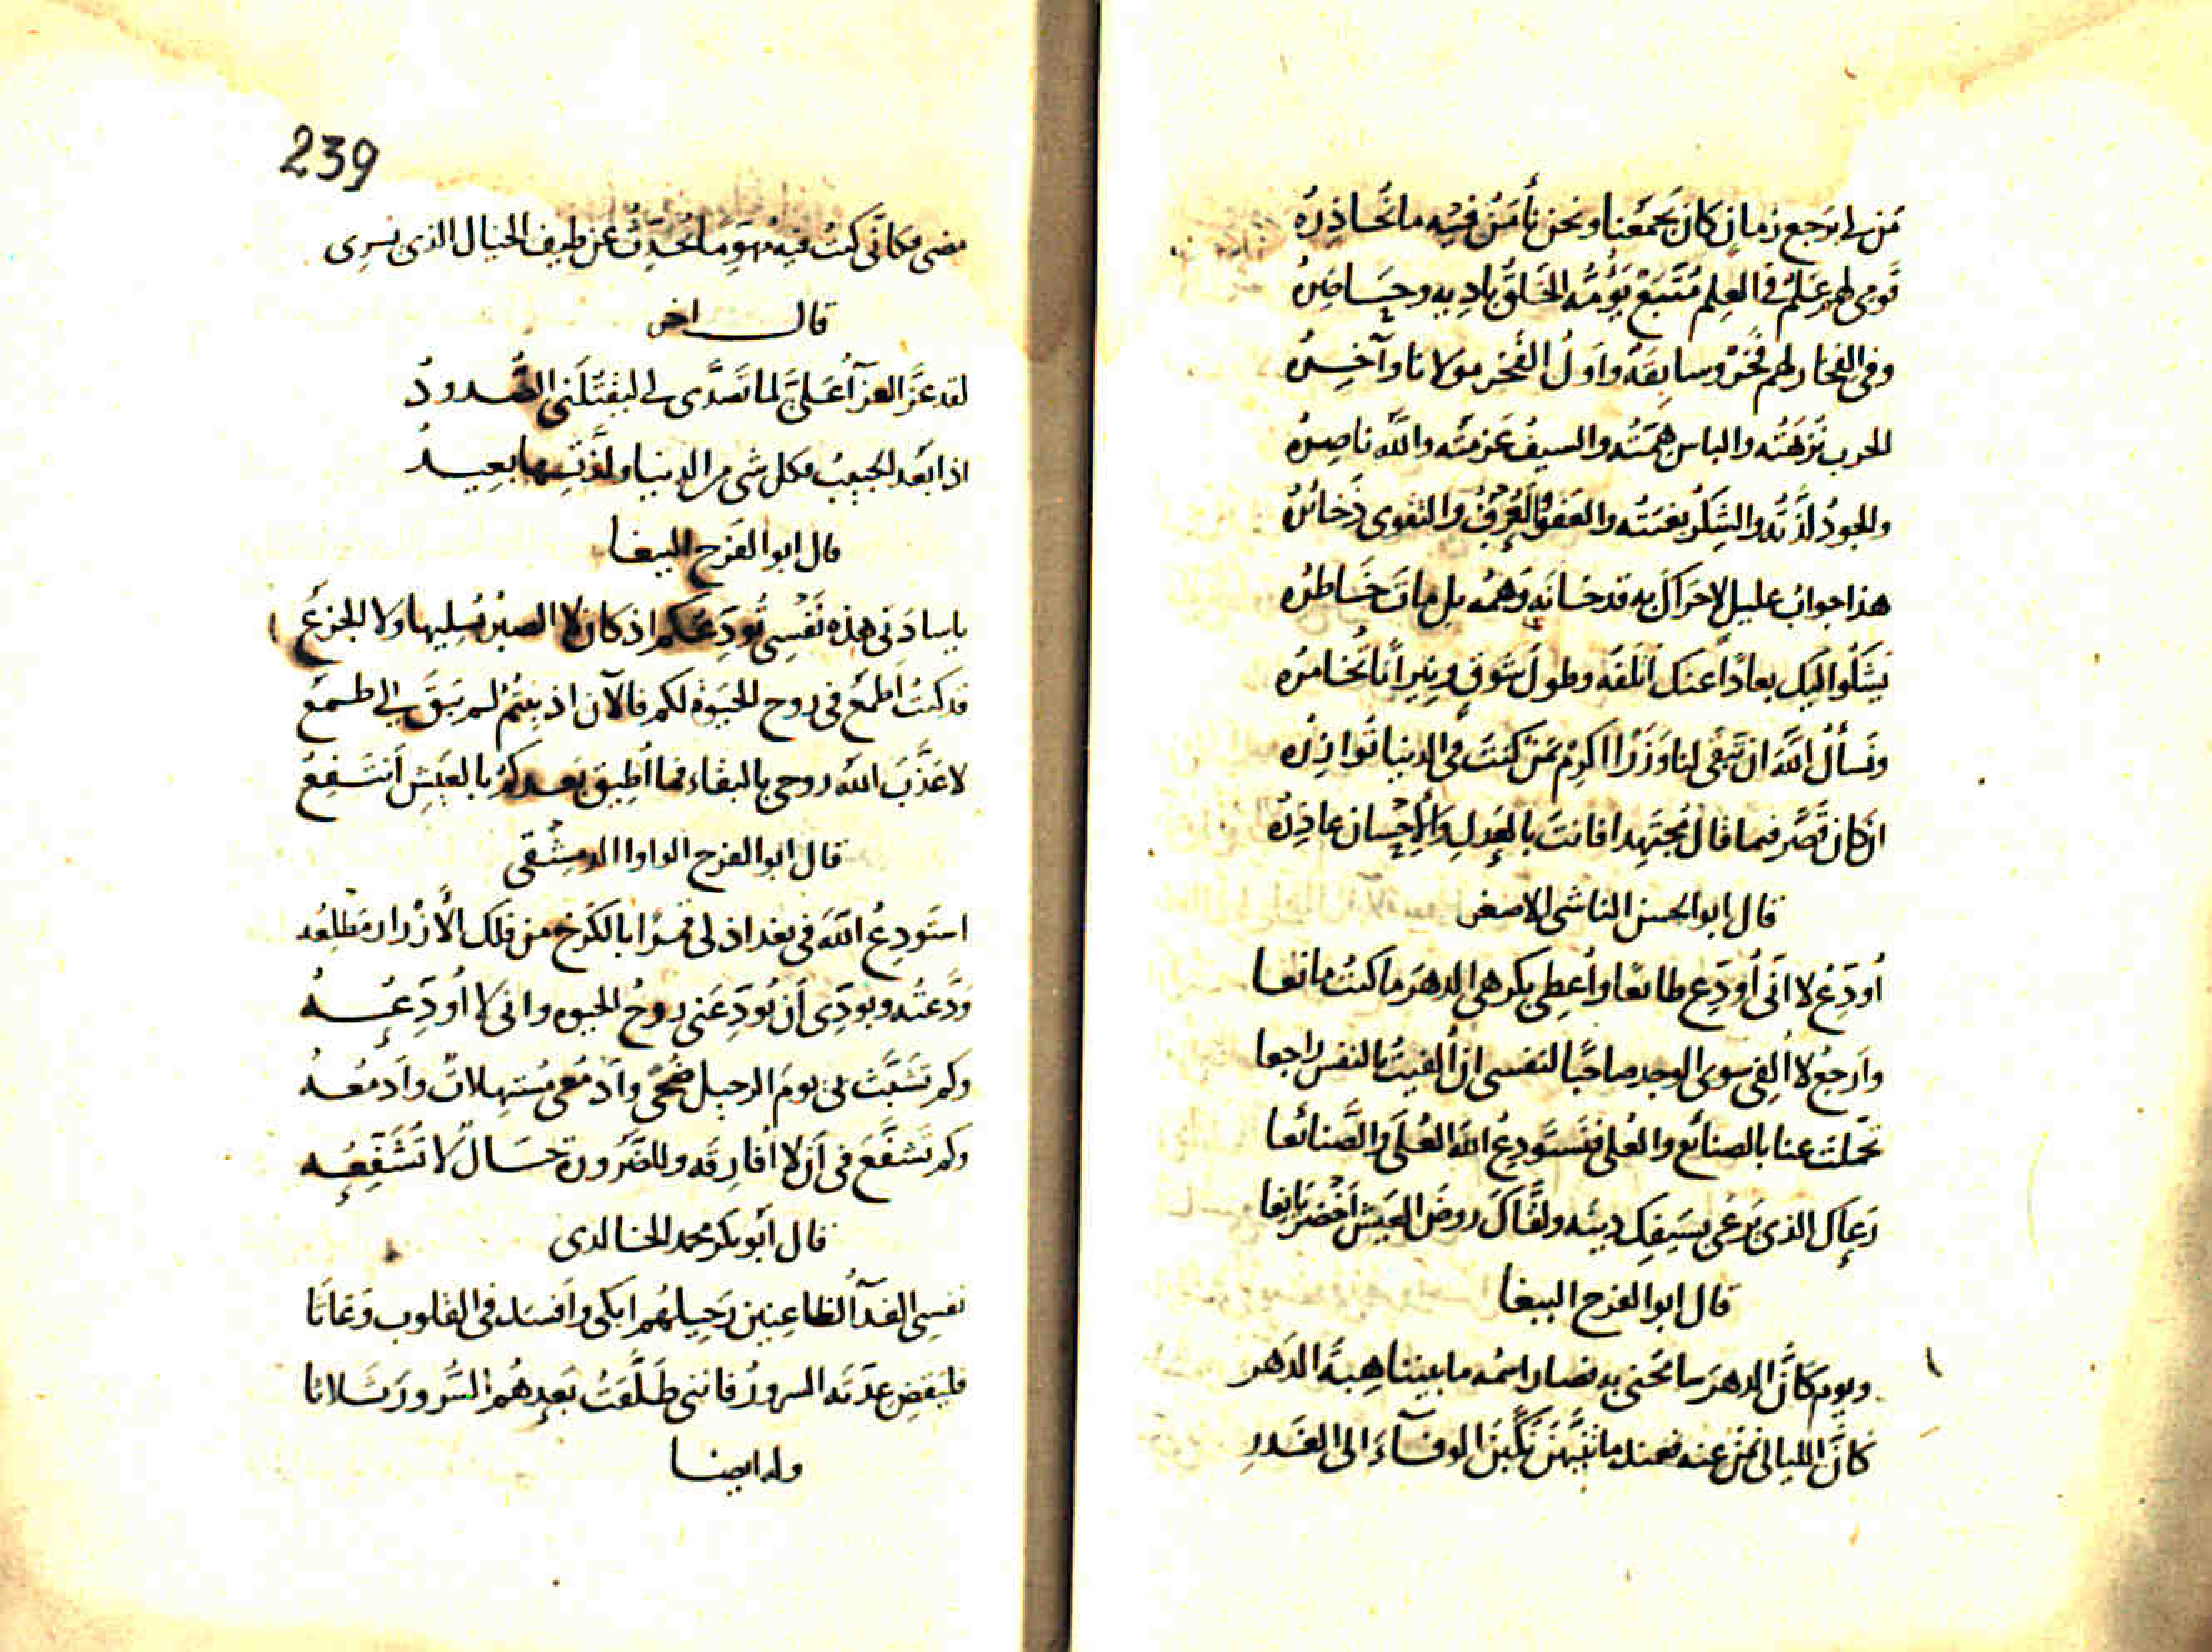 مَن لى برَجع زمانٍ كان يَجمَعُنا ونحن نأمَنُ فيه ما نُحاذرُه
قومى لهم عَلَمٌ فى العِلم مُتَّبَعٌ يَؤُمّه الخَلقُ باديه وحَاضِرُه
وفى الفخار لهم فخرٌ وسابقةٌ واَولُ الفخر مولانا وآخِرُه
الحرب نُزهَتُه والباس هِمّتُه والسيفُ عَزمتُه واللّه ناصِرُه
والجودُ لذّتُه والشكرُ بغيَتُه والعفوُ والعُرفُ والتقوى ذَخائرُه
هذا جوابُ عليلٍ لا حَراكَ به قد خانَه فَهمُه بل مات خَاطرُه
يَشكُوا اليك بعاداً عنك اَتلَفَه وطولَ شوقٍ ونيراناً تُخامرُه
ونَسألُ اللّهَ ان تَبقى لنا وَزَراً اكرِمْ بمَن كنتَ فى الدنيا تُوازرُه
ان كان قصَّر فيما قال مُجتَهِدا فانتَ بالعَدلِ والاِحسان عاذِرُه
قال ابو الحسن الناشى الاصغر
أُودّعُ لا انّى أُودّع طائعًا واُعطى بكرهى الدهرَ ما كنتُ مانعا
واَرجعُ لا اُلفِى سوى الوجد صاحبًا لنفسى ان اُلفيتُ بالنفس راجعا
تحمّلتَ عنا بالصنائع والعُلى فنَستَودِعُ اللّه العُلَى والصَّنائعا
رَعاك الذى يَرعى بسَيفك دينَه ولقّاكَ روضَ العيش اَخضَر يانعا
قال ابو الفرج الببغا
ويومٍ كَأنَّ الدهرَ سامَحَنى به فصار اسمُه ما بيننا هِبةَ الدهر
كأنَّ الليالى نِمنَ عنه فعند ما تنبَّهنَ نكّبنَ الوفآءَ الى الغَدرِ
239
مضى فكأنّى كنتُ فيه مُهَوِّما يُحدِّثُ عن طيف الخيال الذى يسرِى
قال اخر
لقد عَزَّ العزآءُ عَلىَّ لما تَصَدَّى لى ليَقتُلَنى الصُّدودُ
اذا بَعُد الحبيبُ فكل شى من الدنيا ولذّتِها بعِيدُ
قال ابو الفرج الببغا
يا سادَتى هذه نَفسِى تُودّعُكم اذ كان لا الصبرُ يُسليها ولا الجزعُ
قد كنتُ اَطمَعُ فى روح الحَيوة لكم فالآن اذ بِنتُم لم يَبقَ لى طمَعُ
لا عَذَّبَ اللّه روحى بالبقاء فما اُطيق بَعدكمُ بالعَيشِ اَنتَفِعُ
قال ابو الفرج الواوا الدمشقى
استَودِعُ اللّهَ فى بغداذ لى قمرًا بالكَرخ من فلك الاَزرار مَطلعُه
وَدَّعتُه وبودّى اَن تُودِّعَنى روحُ الحيوه وانّى لا اُودِّعُهُ
وكم تَشَبَّثَ بى يومَ الرحيل ضُحًى واَدمُعى مُستَهِلاتٌ واَدمُعُهُ
وكم تَشَفَّعَ فى اَن لا اُفارِقَه وللضَّرُورة حَالٌ لا تُشَفِّعُه
قال أبو بكر محمد الخالدى
نفسِى الفدآُ لظاعِنين رَحِيلهُم ابكى واَفسَد فى القلوب وَعَاثَا
فليَقضِ عدّتَه السرورُ فاننى طَلَّقتُ بَعدهُم السُّرورَ ثَلاثا
وله ايضا